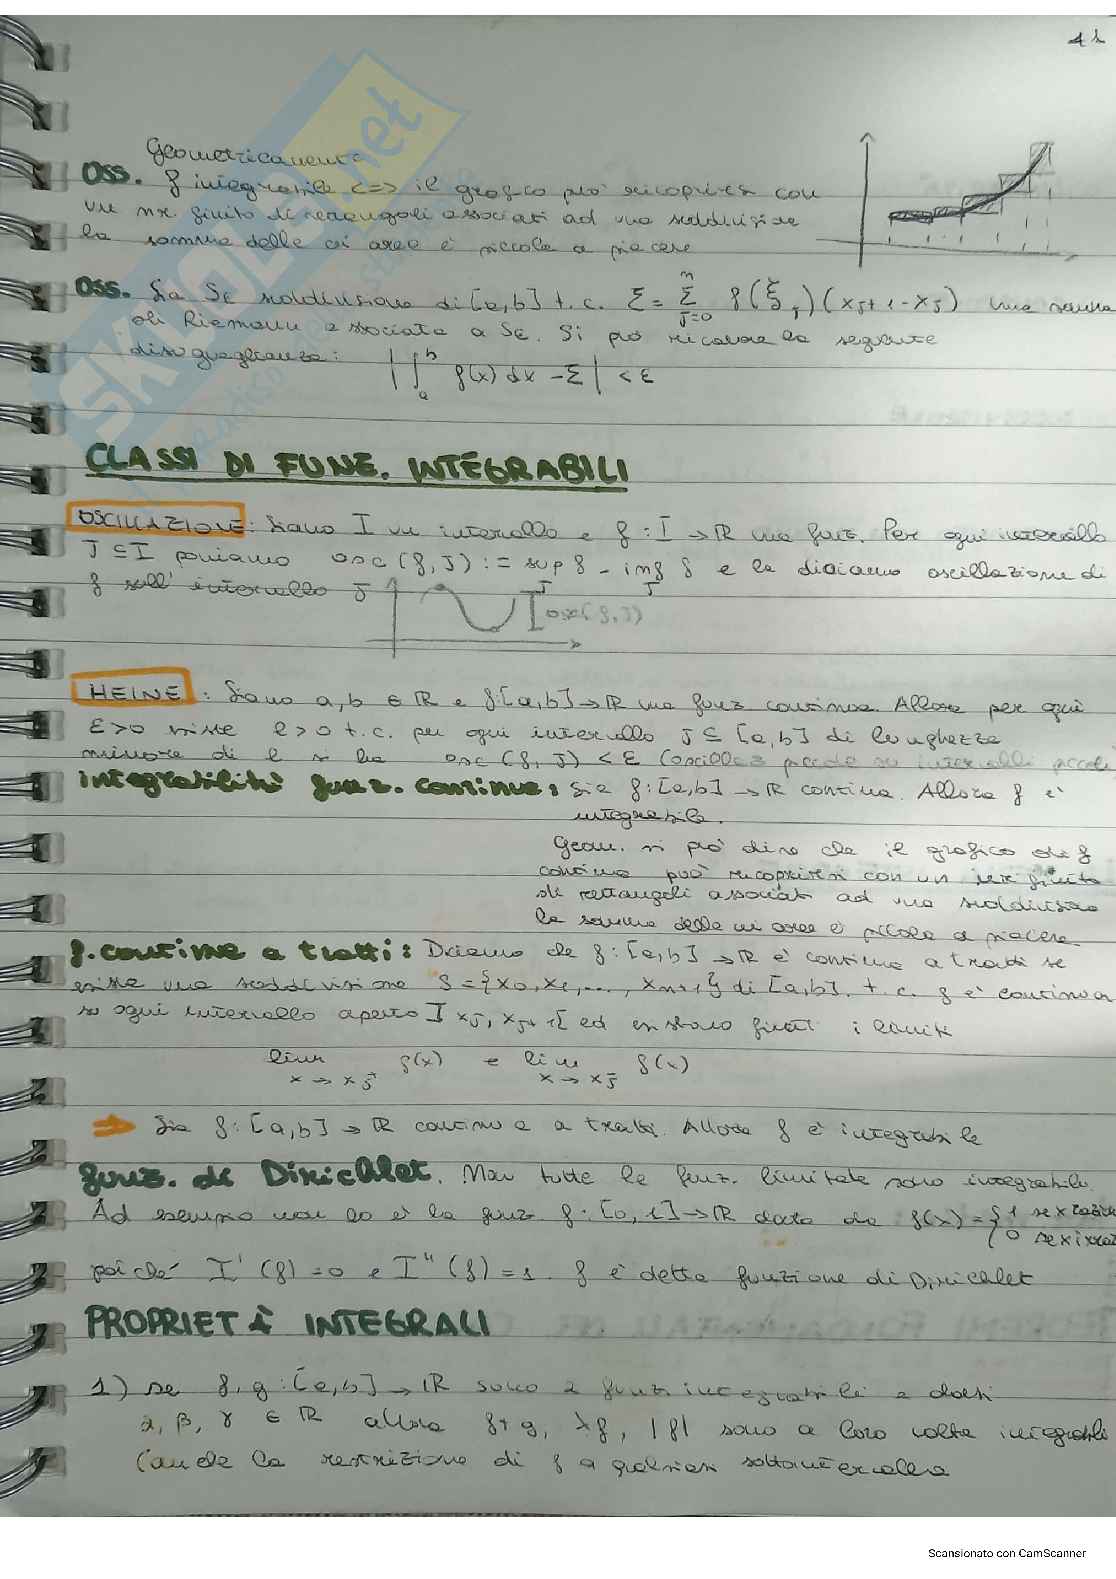 41
Geometricamente
Oss. f integrabile <=> il grafico può ricoprirsi con
un nr. finito di rettangoli associati ad una suddivisione
la somma delle cui aree è piccola a piacere
Oss. Sia Sε suddivisione di [a,b] t.c. Σ = Σ_{j=0}^{n} f(ξj)(xj+1 - xj) una somma
di Riemann associata a Sε. Si può ricavare la seguente
disuguaglianza: |∫_a^b f(x) dx - Σ| < ε
CLASSI DI FUNZ. INTEGRABILI
OSCILLAZIONE: Siano I un intervallo e f: I → R una funz. Per ogni intervallo
J ⊆ I poniamo osc(f, J) := sup_J f - inf_J f e la diciamo oscillazione di
f sull'intervallo J
osc(f, J)
HEINE: Siano a, b ∈ R e f: [a,b] → R una funz continua. Allora per ogni
ε > 0 esiste l > 0 t.c. per ogni intervallo J ⊆ [a,b] di lunghezza
minore di l si ha osc(f, J) < ε (oscillaz piccole su intervalli piccoli
integrabilità funz. continue: Sia f: [a,b] → R continua. Allora f è
integrabile.
Geom. si può dire che il grafico di f
continua può ricoprirsi con un nr finito
di rettangoli associati ad una suddivisione
la somma delle cui aree è piccola a piacere
f. continue a tratti: Diciamo che f: [a,b] → R è continua a tratti se
esiste una suddivisione S = {x0, x1, ..., xn+1} di [a,b], t.c. f è continua
su ogni intervallo aperto ]xj, xj+1[ ed esistono finiti i limiti
lim_{x → xj+} f(x) e lim_{x → xj-} f(x)
⇒ Sia f: [a,b] → R continua a tratti. Allora f è integrabile
funz. di Dirichlet. Non tutte le funz. limitate sono integrabili.
Ad esempio non lo è la funz f: [0,1] → R data da f(x) = {1 se x razion
0 se x irraz
poiché I'(f) = 0 e I''(f) = 1. f è detta funzione di Dirichlet
PROPRIETÀ INTEGRALI
1) se f, g: [a,b] → R sono 2 funz integrabili e dati
α, β, γ ∈ R allora f+g, λf, |f| sono a loro volta integrabili
(anche la restrizione di f a qualsiasi sottointervallo
SKUOLA.net
Scansionato con CamScanner